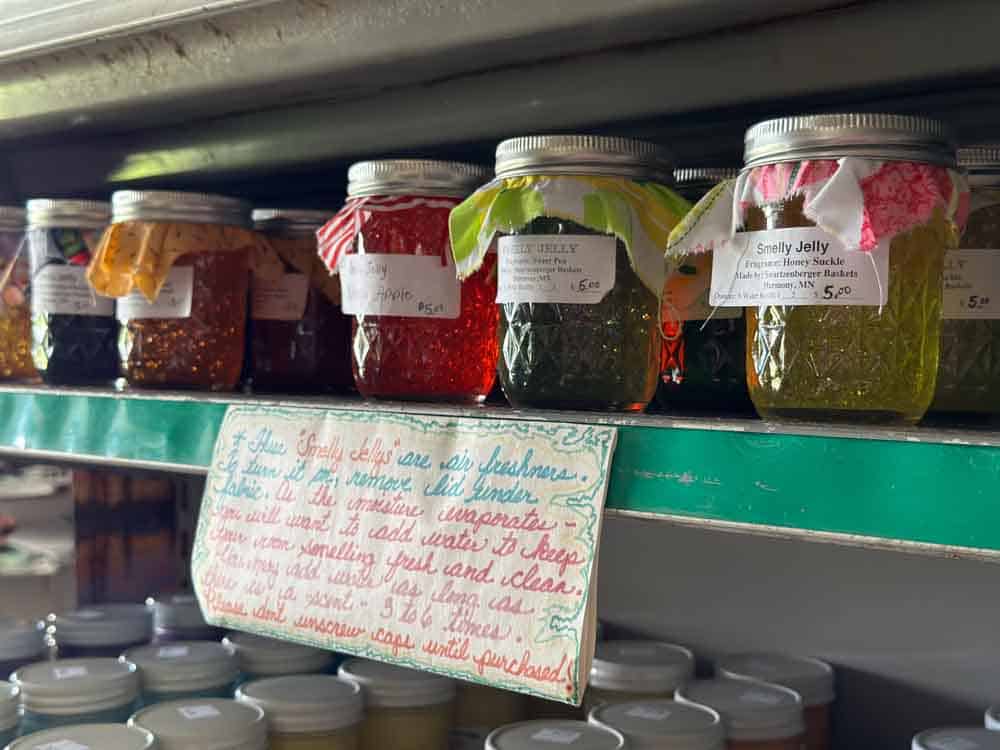 Jelly
Apple
$5.00
SMELLY JELLY
Fragrance: Sweet Pea
Made by: Swartzenberger Baskets
Harmony, MN
$ 5.00
Smelly Jelly
Fragrance: Honey Suckle
Made by: Swartzenberger Baskets
Harmony, MN
$ 5.00
$ 5.00
* These "Smelly Jellys" are air freshners.
To turn it on, remove lid under
fabric. As the moisture evaporates -
you will want to add water to keep
your room smelling fresh and clean.
You may add water as long as
there is a scent - 5 to 6 times.
Please don't unscrew caps until purchased!